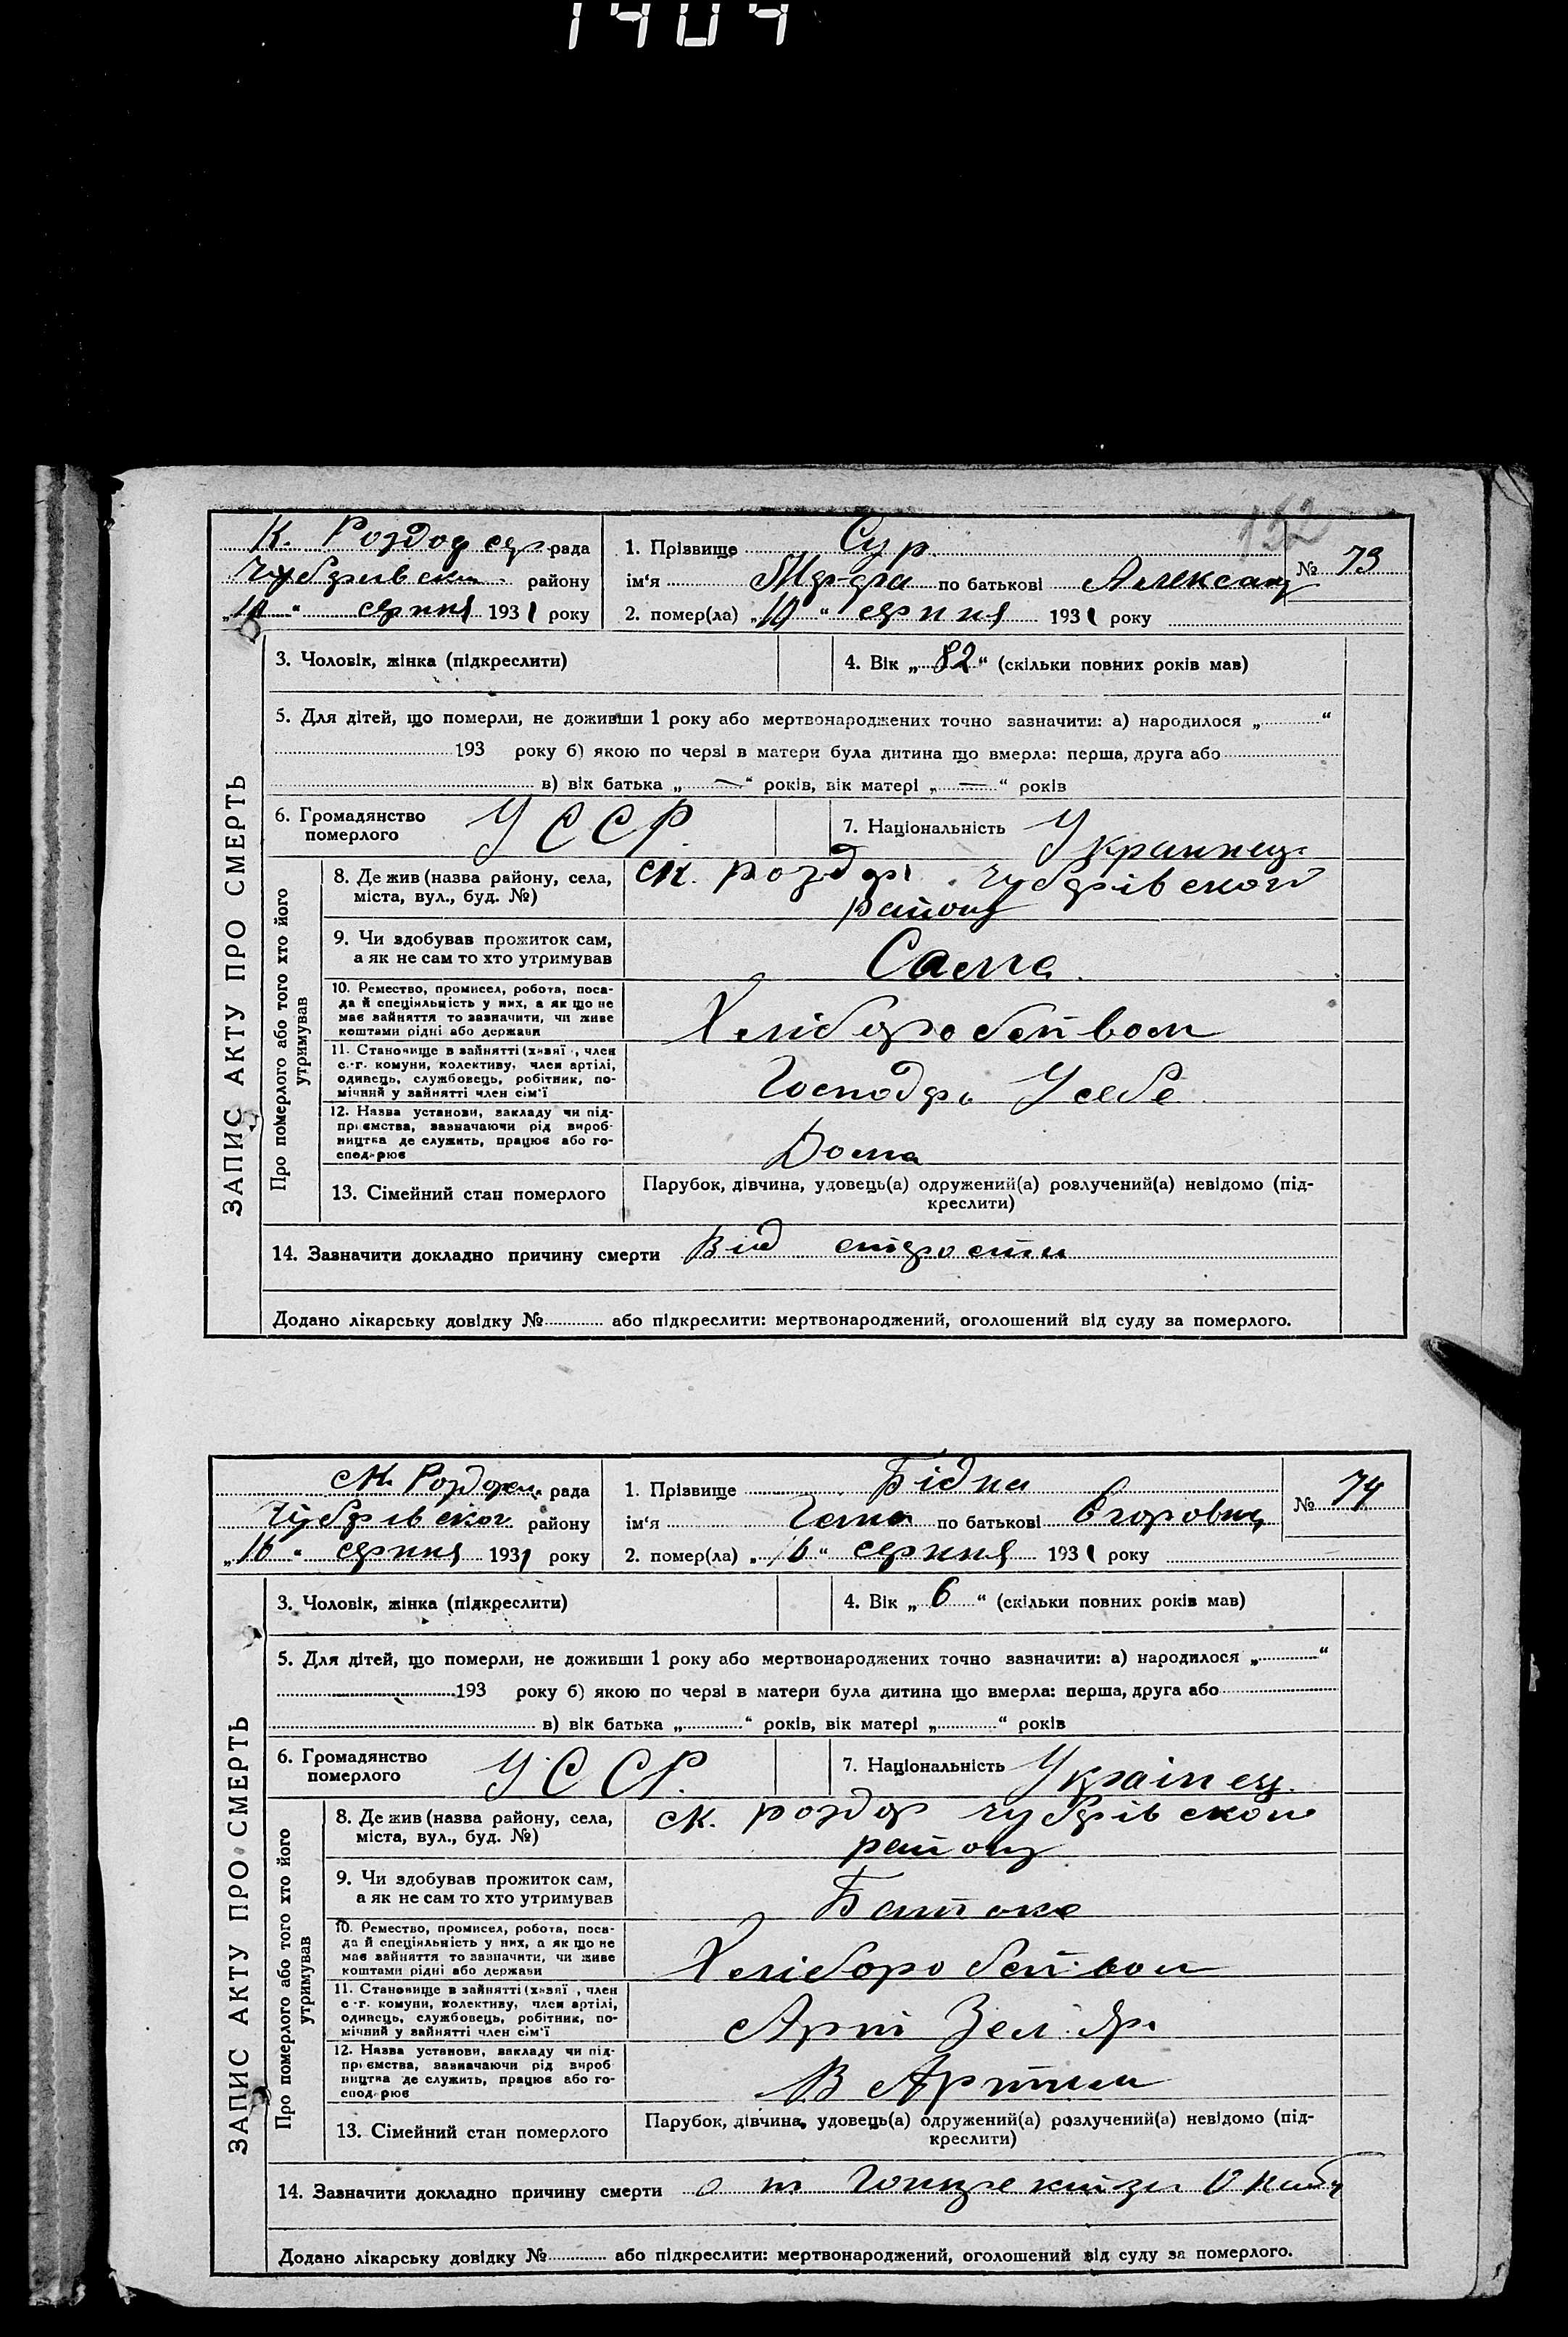 1404
152
К. Роздор ср рада
Чубарівськ району
„10“ серпня 1931 року
1. Прізвище Сур
ім‘я по батькові Александ
№ 73
2. помер(ла) „10“ серпня 1931 року
3. Чоловік, жінка (підкреслити)
4. Вік „82“ (скільки повних років мав)
5. Для дітей, що померли, не доживши 1 року або мертвонароджених точно зазначити: а) народилося „ “
193 року б) якою по черзі в матери була дитина що вмерла: перша, друга або
в) вік батька „—“ років, вік матері „—“ років
6. Громадянство померлого УССР
7. Національність Украинец
ЗАПИС АКТУ ПРО СМЕРТЬ
Про померлого або того хто його утримував
8. Де жив (назва району, села, міста, вул., буд. №)
ск. роздорі Чубарівского
району
9. Чи здобував прожиток сам, а як не сам то хто утримував
Сама
10. Ремество, промисел, робота, посада й спеціяльність у них, а як що не має зайняття то зазначити, чи живе коштами рідні або держави
Хеліборобством
11. Становище в зайнятті (хазяї , член с.-г. комуни, колективу, член артілі, одинець, службовець, робітник, помічний у зайнятті член сім‘ї
Господар Усебе
12. Назва установи, закладу чи підприємства, зазначаючи рід виробництва де служить, працює або господарює
Дома
13. Сімейний стан померлого
Парубок, дівчина, удовець(а) одружений(а) розлучений(а) невідомо (підкреслити)
14. Зазначити докладно причину смерти Від старости
Додано лікарську довідку № або підкреслити: мертвонароджений, оголошений від суду за померлого.
ск. Роздорск. рада
Чубарівског району
„16“ серпня 1931 року
1. Прізвище Бідна
ім‘я по батькові Єгоровна
№ 74
2. помер(ла) „16“ серпня 1931 року
3. Чоловік, жінка (підкреслити)
4. Вік „6“ (скільки повних років мав)
5. Для дітей, що померли, не доживши 1 року або мертвонароджених точно зазначити: а) народилося „ “
193 року б) якою по черзі в матери була дитина що вмерла: перша, друга або
в) вік батька „ “ років, вік матері „ “ років
6. Громадянство померлого УССР.
7. Національність Українец.
ЗАПИС АКТУ ПРО СМЕРТЬ
Про померлого або того хто його утримував
8. Де жив (назва району, села, міста, вул., буд. №)
ск. роздор чубарівского
району
9. Чи здобував прожиток сам, а як не сам то хто утримував
10. Ремество, промисел, робота, посада й спеціяльність у них, а як що не має зайняття то зазначити, чи живе коштами рідні або держави
Хеліборобством
11. Становище в зайнятті (хазяї , член с.-г. комуни, колективу, член артілі, одинець, службовець, робітник, помічний у зайнятті член сім‘ї
Арті Зел. Яр.
12. Назва установи, закладу чи підприємства, зазначаючи рід виробництва де служить, працює або господарює
В Артили
13. Сімейний стан померлого
Парубок, дівчина, удовець(а) одружений(а) розлучений(а) невідомо (підкреслити)
14. Зазначити докладно причину смерти от
Додано лікарську довідку № або підкреслити: мертвонароджений, оголошений від суду за померлого.